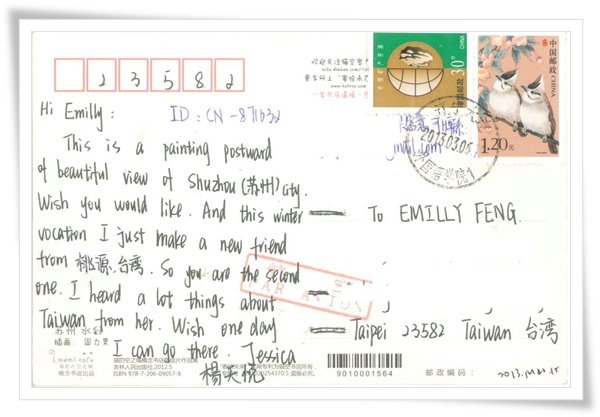 23582
Hi Emilly:
ID: CN-871632
This is a painting postward
of beautiful view of Shuzhou (苏州) city.
Wish you would like. And this winter
vocation I just make a new friend
from 桃源, 台湾. So you are the second
one. I heard a lot things about
Taiwan from her. Wish one day
I can go there. Jessica
30分
中国邮政
CHINA
中国邮政
CHINA
1.20元
2013.03.05
gmail.com
To EMILLY FENG
PAR AVION
Taipei 23582 Taiwan 台湾
苏州水彩
概念书店出品
吉林人民出版社, 2012.5
ISBN 978-7-206-09057-8
9010001564
邮政编码:
2013. Mar. 15